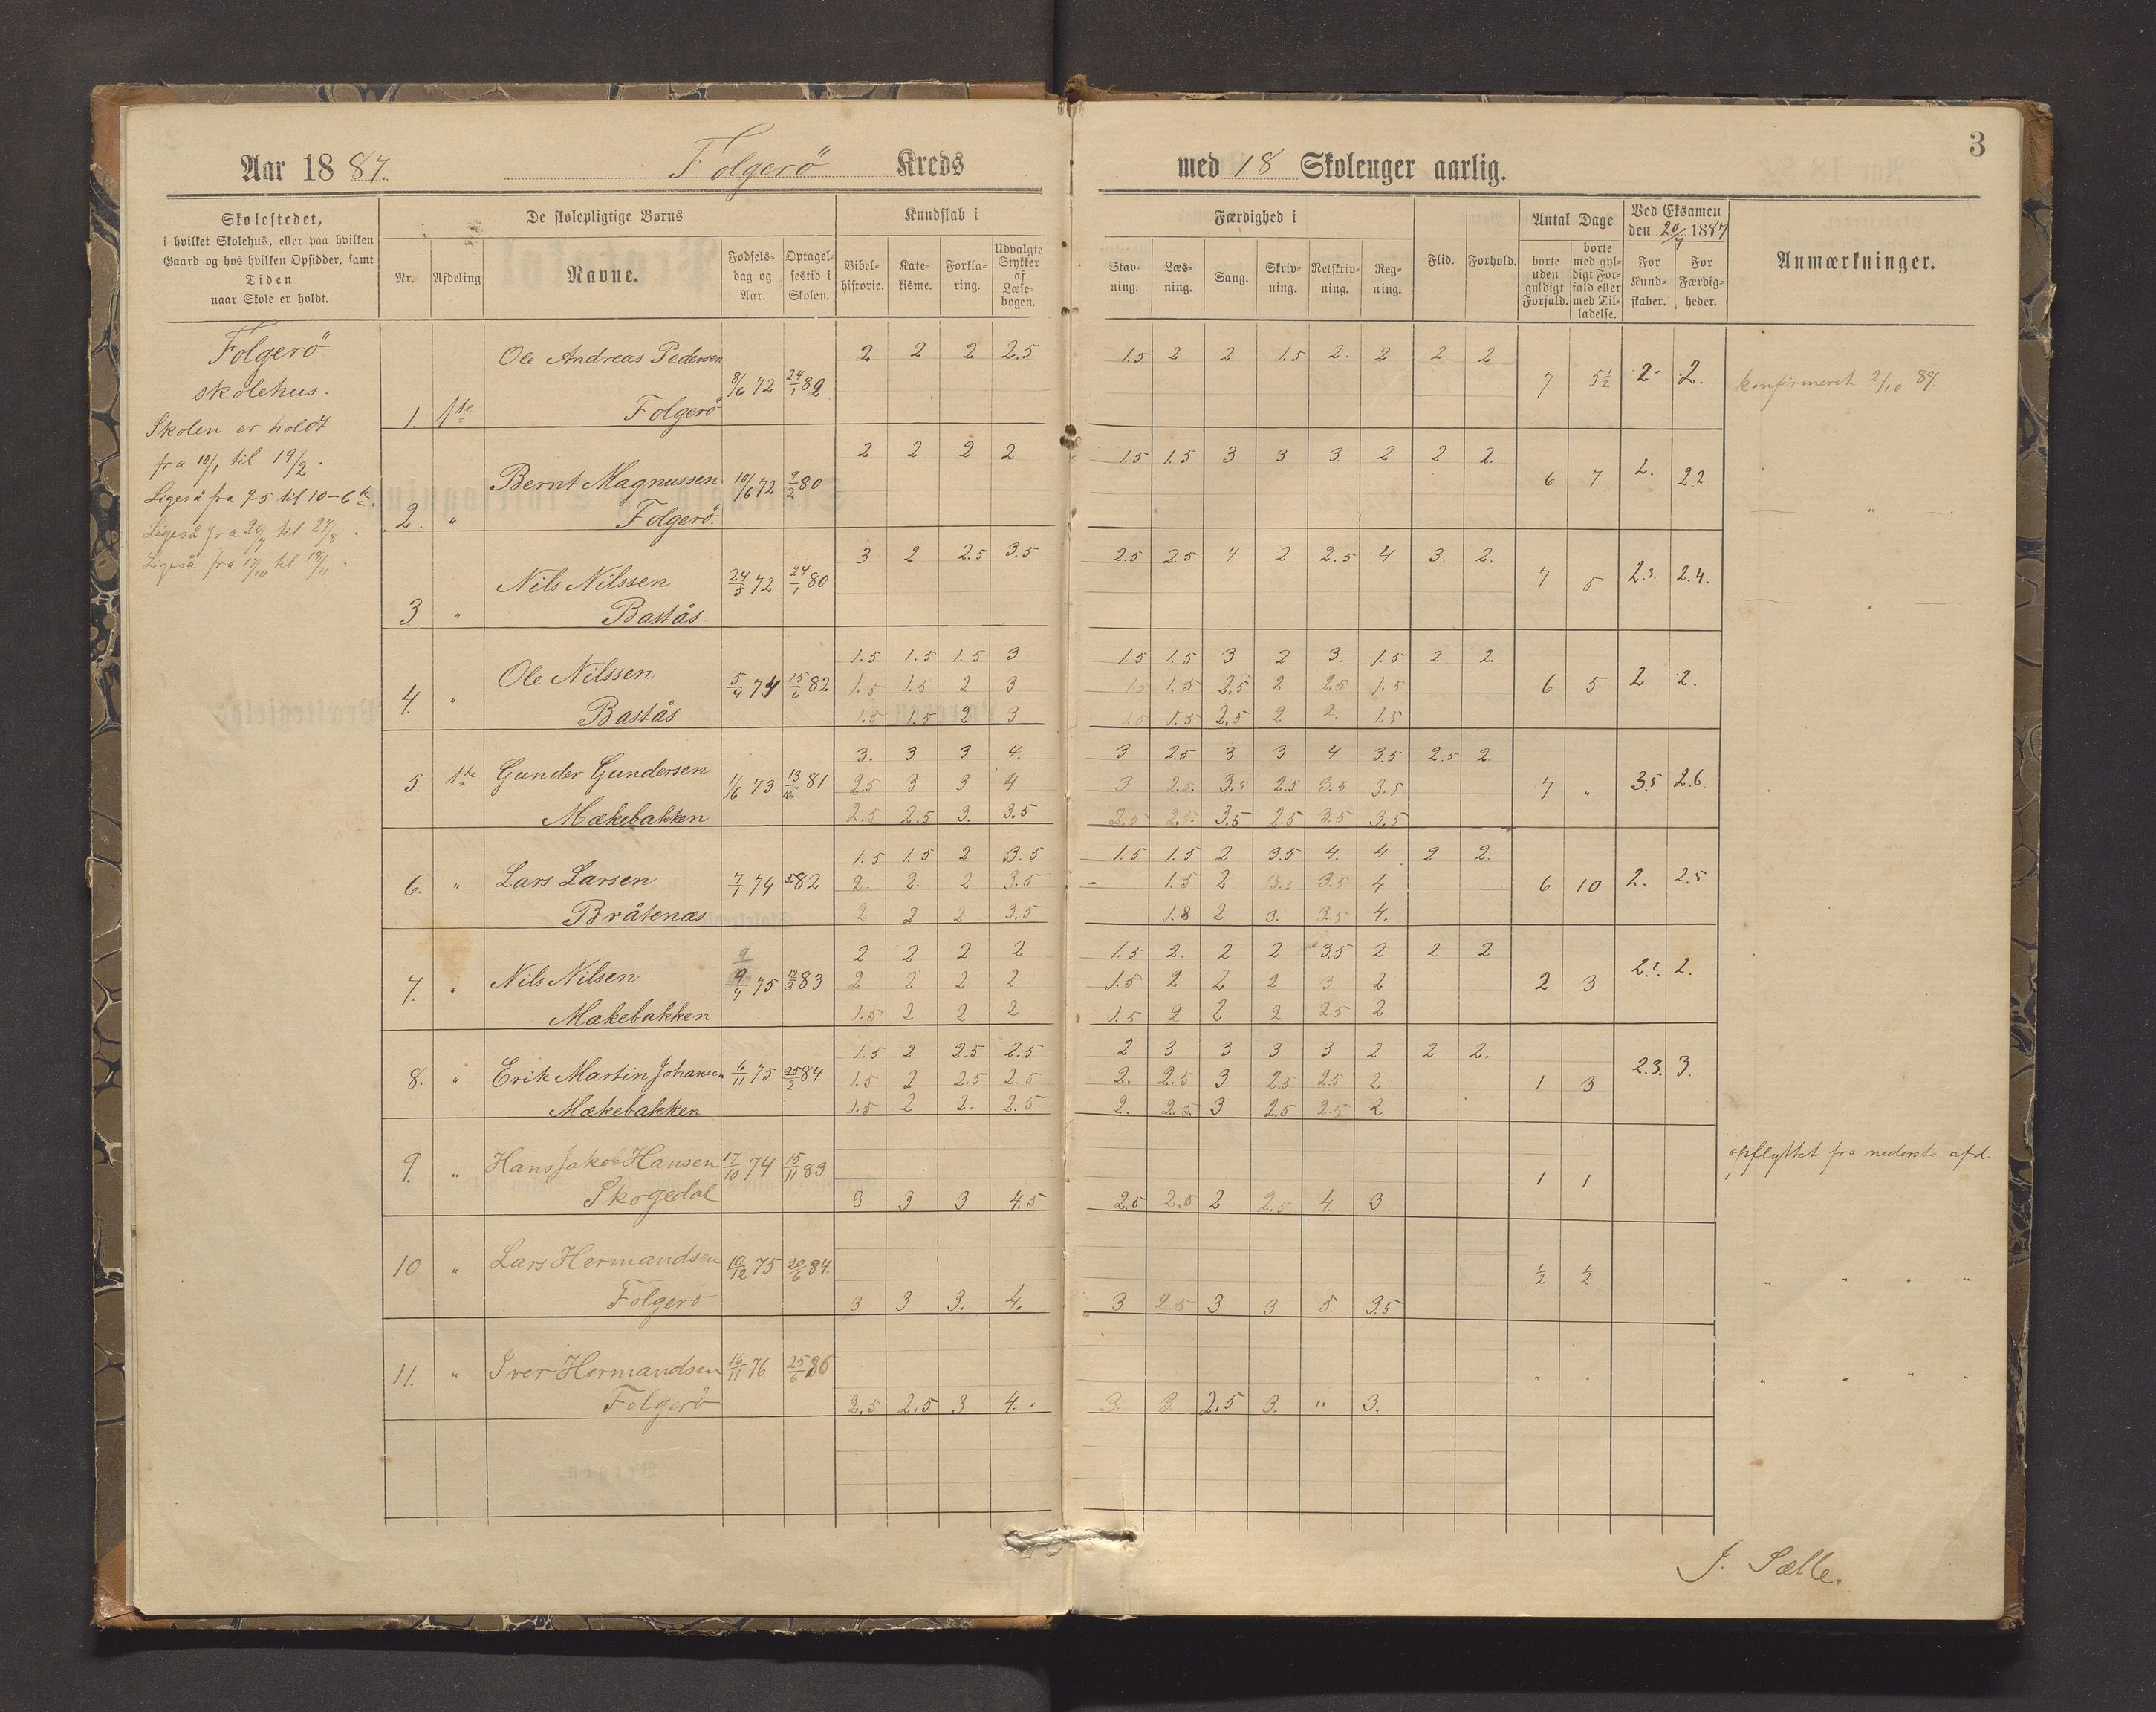 3
Aar 1887. Folgerö Kreds med 18 Skoleuger aarlig.
Skolestedet, i hvilket Skolehus, eller paa hvilken Gaard og hos hvilken Opsidder, samt Tiden naar Skole er holdt.
De skolepligtige Børns
Nr. Afdeling Navne. Fødselsdag og Aar. Optagelsestid i Skolen.
Kundskab i
Bibelhistorie. Katekisme. Forklaring. Udvalgte Stykker af Læsebogen.
Færdighed i
Stavning. Læsning. Sang. Skrivning. Retskrivning. Regning. Flid. Forhold.
Antal Dage
borte uden gyldigt Forfald. borte med gyldigt Forfald eller med Tilladelse.
Ved Eksamen den 20/7 1887
For Kundskaber. For Færdigheder.
Anmærkninger.
Folgerö
skolehus.
Skolen er holdt
fra 10/1 til 19/2.
Ligeså fra 9-5 til 10-6te.
Ligeså fra 20/7 til 27/8.
Ligeså fra 13/10 til 18/11.
Ole Andreas Pedersen 2 2 2 2.5 1.5 2 2 1.5 2. 2 2 2
8/6 72 24/1 82 7 5½ 2 2. konfirmeret 2/10 87.
1. 1ste Folgerö
2 2 2 2 1.5 1.5 3 3 3 2 2 2.
Bernt Magnussen 10/6 72 9/2 80 6 7 2. 2.2.
2. " Folgerö. "
3 2 2.5 3.5 2.5 2.5 4 2 2.5 4 3. 2.
Nils Nilssen 24/5 72 24/1 80 7 5 2.5. 2.4.
3 " Bastås "
1.5 1.5 1.5 3 1.5 1.5 3 2 3. 1.5 2 2.
4. " Ole Nilssen 5/4 74 15/6 82 1.5 1.5 2 3 1.5 1.5 2.5 2 2.5 1.5 6 5 2 2.
Bastås 1.5 1.5 2 3 1.5 1.5 2.5 2 2. 1.5
3. 3 3 4. 3 2.5 3 3 4 3.5 2.5 2.
5. 1ste Gunder Gundersen 1/6 73 13/10 81 2.5 3 3 4 3 2.5. 3.5 2.5 3.5 3.5 7 " 3.5 2.6.
Mækebakken 2.5 2.5 3. 3.5 2.5 2.5. 3.5 2.5 3.5 3.5
1.5 1.5 2 3.5 1.5 1.5 2 3.5 4. 4 2 2.
6. " Lars Larsen 7/1 74 82 2. 2. 2 3.5 1.5 2 3.5 3.5 4 6 10 2. 2.5
Bråtenæs 2 2 2 3.5 1.8 2 3. 3.5 4.
2 2 2 2 1.5 2. 2 2 3.5 2 2 2
7. " Nils Nilsen 9/4 75 12/3 83 2 2 2 2 1.5 2 2 2 3 2 2 3 2.2. 2.
Mækebakken 1.5 2 2 2 1.5 2 2 2 2.5 2
1.5 2 2.5 2.5 2 3 3 3 3 2 2 2.
8. " Erik Martin Johansen 6/11 75 25/2 84 1.5 2 2.5 2.5 2. 2.5 3 2.5 2.5 2 1 3 2.3. 3.
Mækebakken 1.5 2 2. 2.5 2. 2.5. 3 2.5 2.5 2
9. " Hans Jakob Hansen 17/10 74 15/11 83 1 1 opflyttet fra nederste afd.
Skogedal 3 3 3 4.5 2.5 2.5 2 2.5 4. 3
10 " Lars Hermandsen 10/12 75 20/6 84. ½ ½ " " " "
Folgerö 3 3 3. 4. 3 2.5 3 3 5 3.5
11. " Iver Hermandsen 16/11 76 25/6 86 " " " " " "
Folgerö 2.5 2.5 3 4. 3. 3. 2.5 3. " 3.
J. Sælle.